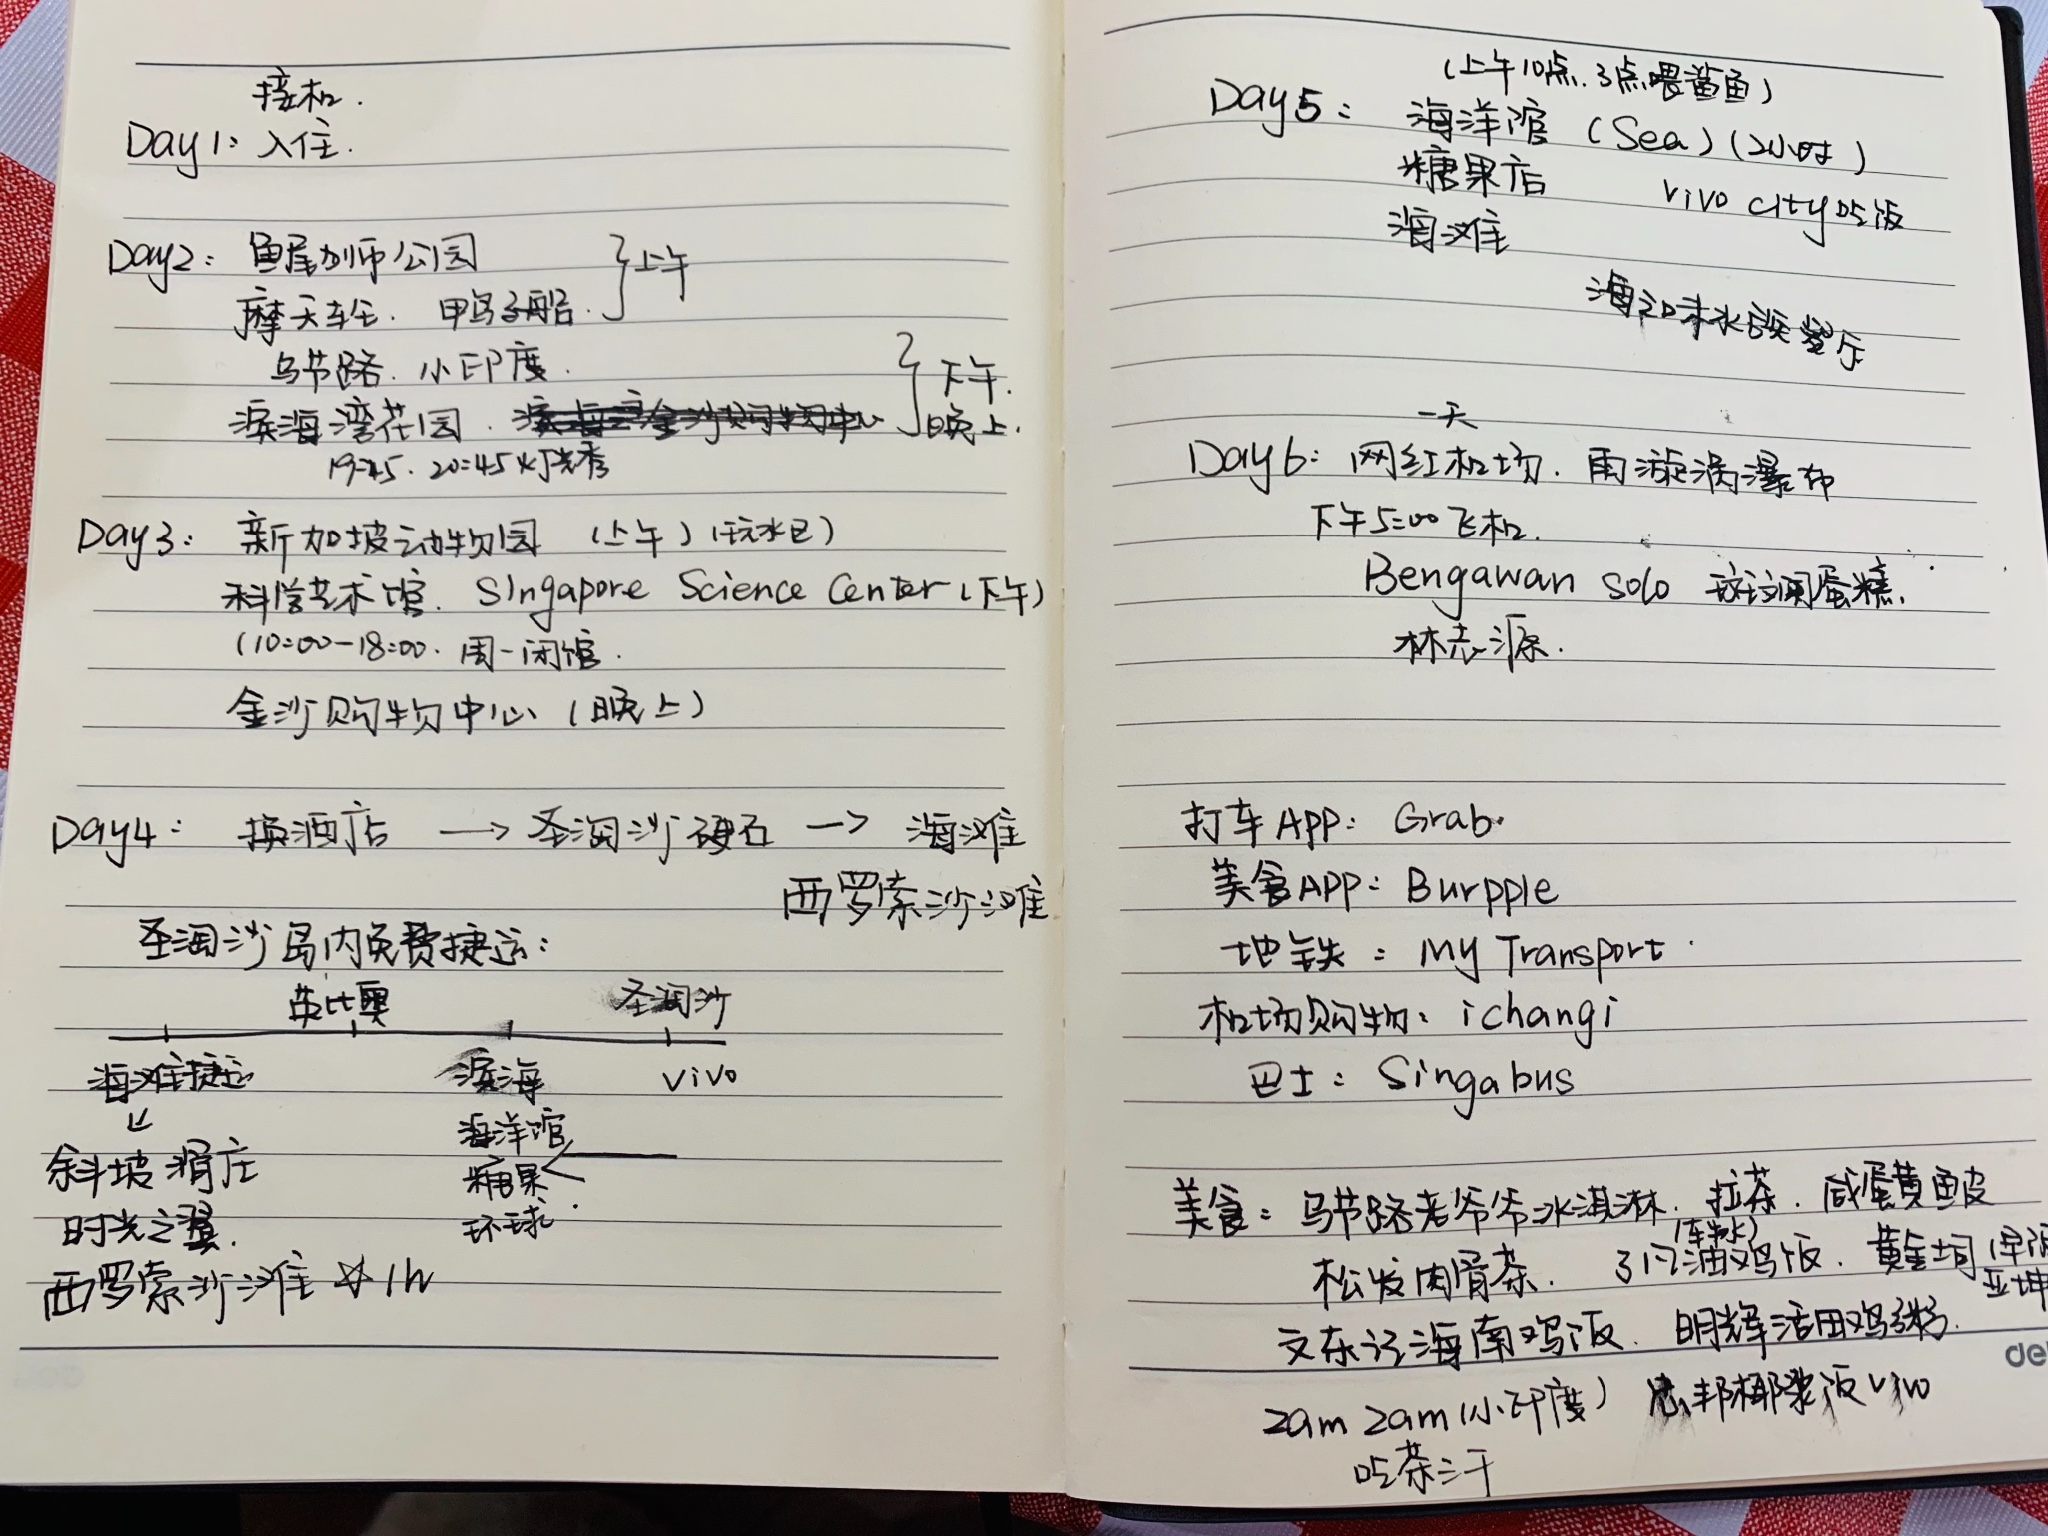 接机.
Day1: 入住.
Day2: 鱼尾狮公园 }上午
摩天轮. 鸭子船.
乌节路. 小印度. }下午.
滨海湾花园. 晚上.
19:45. 20:45灯光秀
Day3: 新加坡动物园 (上午) (玩水区)
科学艺术馆. Singapore Science Center (下午)
(10:00-18:00. 周一闭馆.
金沙购物中心 (晚上)
Day4: 换酒店 → 圣淘沙硬石 → 海滩
西罗索沙滩
圣淘沙岛内免费捷运:
英比奥 圣淘沙
海滩捷运 滨海 vivo
↙ 海洋馆
斜坡滑 糖果
时光之翼. 环球.
西罗索沙滩 ☆1h
(上午10点. 3点喂鲨鱼)
Day5: 海洋馆 (Sea) (2小时)
糖果店 vivo city吃饭
海滩
海之味水族餐厅
一天
Day6: 网红机场. 雨漩涡瀑布
下午5:00飞机.
Bengawan solo 斑斓蛋糕.
林志源.
打车APP: Grab.
美食APP: Burpple
地铁: My Transport.
机场购物: ichangi
巴士: Singabus
美食: 乌节路老爷爷冰淇淋. 拉茶. 咸蛋黄鱼皮
(车水)
松发肉骨茶. 了凡油鸡饭. 黄金 (早
亚坤
文东记海南鸡饭. 明辉活田鸡粥.
zam zam (小印度) 邦椰浆饭vivo
吃茶三千